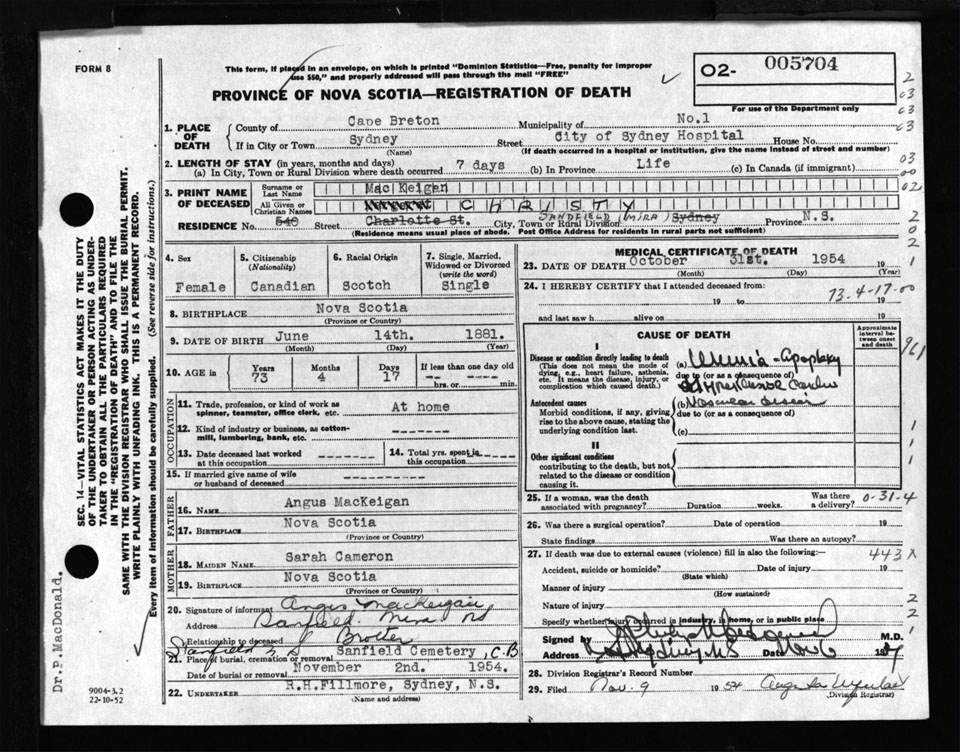 FORM 8
This form, if placed in an envelope, on which is printed "Dominion Statistics—Free, penalty for improper
use $50," and properly addressed will pass through the mail "FREE"
PROVINCE OF NOVA SCOTIA—REGISTRATION OF DEATH
02- 005704
For use of the Department only
1. PLACE OF DEATH
County of Cape Breton Municipality of No.1
If in City or Town Sydney Street City of Sydney Hospital House No.
(Name) (If death occurred in a hospital or institution, give the name instead of street and number)
2. LENGTH OF STAY (in years, months and days)
(a) In City, Town or Rural Division where death occurred 7 days (b) In Province Life (c) In Canada (if immigrant)
3. PRINT NAME OF DECEASED
Surname or Last Name MacKeigan
All Given or Christian Names CHRISTY
RESIDENCE No. 540 Street Charlotte St. City, Town or Rural Division SANDFIELD (MIRA) Sydney Province N.S.
(Residence means usual place of abode. Post Office Address for residents in rural parts not sufficient)
4. Sex
Female
5. Citizenship
(Nationality)
Canadian
6. Racial Origin
Scotch
7. Single, Married,
Widowed or Divorced
(write the word)
Single
8. BIRTHPLACE Nova Scotia
(Province or Country)
9. DATE OF BIRTH June 14th. 1881.
(Month) (Day) (Year)
10. AGE in
Years Months Days If less than one day old
73 4 17 hrs. or min.
OCCUPATION
11. Trade, profession, or kind of work as
spinner, teamster, office clerk, etc. At home
12. Kind of industry or business, as cotton-
mill, lumbering, bank, etc. -------
13. Date deceased last worked
at this occupation -------
14. Total yrs. spent in
this occupation -------
15. If married give name of wife
or husband of deceased -------
FATHER
16. NAME Angus MacKeigan
17. BIRTHPLACE Nova Scotia
(Province or Country)
MOTHER
18. MAIDEN NAME Sarah Cameron
19. BIRTHPLACE Nova Scotia
(Province or Country)
20. Signature of informant Angus MacKeigan
Address Mira Rd
Relationship to deceased Brother
21. Place of burial, cremation or removal Sanfield Cemetery, C.B
Date of burial or removal November 2nd. 1954.
22. UNDERTAKER R.H.Fillmore, Sydney, N.S.
(Name and address)
MEDICAL CERTIFICATE OF DEATH
23. DATE OF DEATH October 31st. 1954
(Month) (Day) (Year)
24. I HEREBY CERTIFY that I attended deceased from:
19 to 19
73.4-17.00
and last saw h alive on 19
CAUSE OF DEATH
Approximate
interval be-
tween onset
and death
I
Disease or condition directly leading to death
(This does not mean the mode of
dying, e.g., heart failure, asthenia,
etc. It means the disease, injury, or
complication which caused death.)
(a) Uremia - Apoplexy
due to (or as a consequence of)
Hypertensive Cardio
Antecedent causes
Morbid conditions, if any, giving
rise to the above cause, stating the
underlying condition last.
(b) Vascular disease
due to (or as a consequence of)
(c)
II
Other significant conditions
contributing to the death, but not
related to the disease or condition
causing it.
25. If a woman, was the death
associated with pregnancy? Duration weeks. Was there
a delivery?
0-31-4
26. Was there a surgical operation? Date of operation 19
State findings Was there an autopsy?
27. If death was due to external causes (violence) fill in also the following:—
443X
Accident, suicide or homicide? Date of injury 19
(State which)
Manner of injury
(How sustained)
Nature of injury
Specify whether injury occurred in industry, in home, or in public place
Signed by M.D.
Address Sydney NS Date Nov 6 19
28. Division Registrar's Record Number
29. Filed Nov. 9 1954
(Division Registrar)
SEC. 14—VITAL STATISTICS ACT MAKES IT THE DUTY
OF THE UNDERTAKER OR PERSON ACTING AS UNDER-
TAKER TO OBTAIN ALL THE PARTICULARS REQUIRED
IN THE "REGISTRATION OF DEATH" AND TO FILE THE
SAME WITH THE DIVISION REGISTRAR WHO SHALL ISSUE THE BURIAL PERMIT.
WRITE PLAINLY WITH UNFADING INK. THIS IS A PERMANENT RECORD.
Every item of information should be carefully supplied. (See reverse side for instructions.)
Dr.P.MacDonald.
9004-3.2
22-10-52
2
03
03
03
03
00
02
2
0
2
1
961
1
1
1
2
2
1